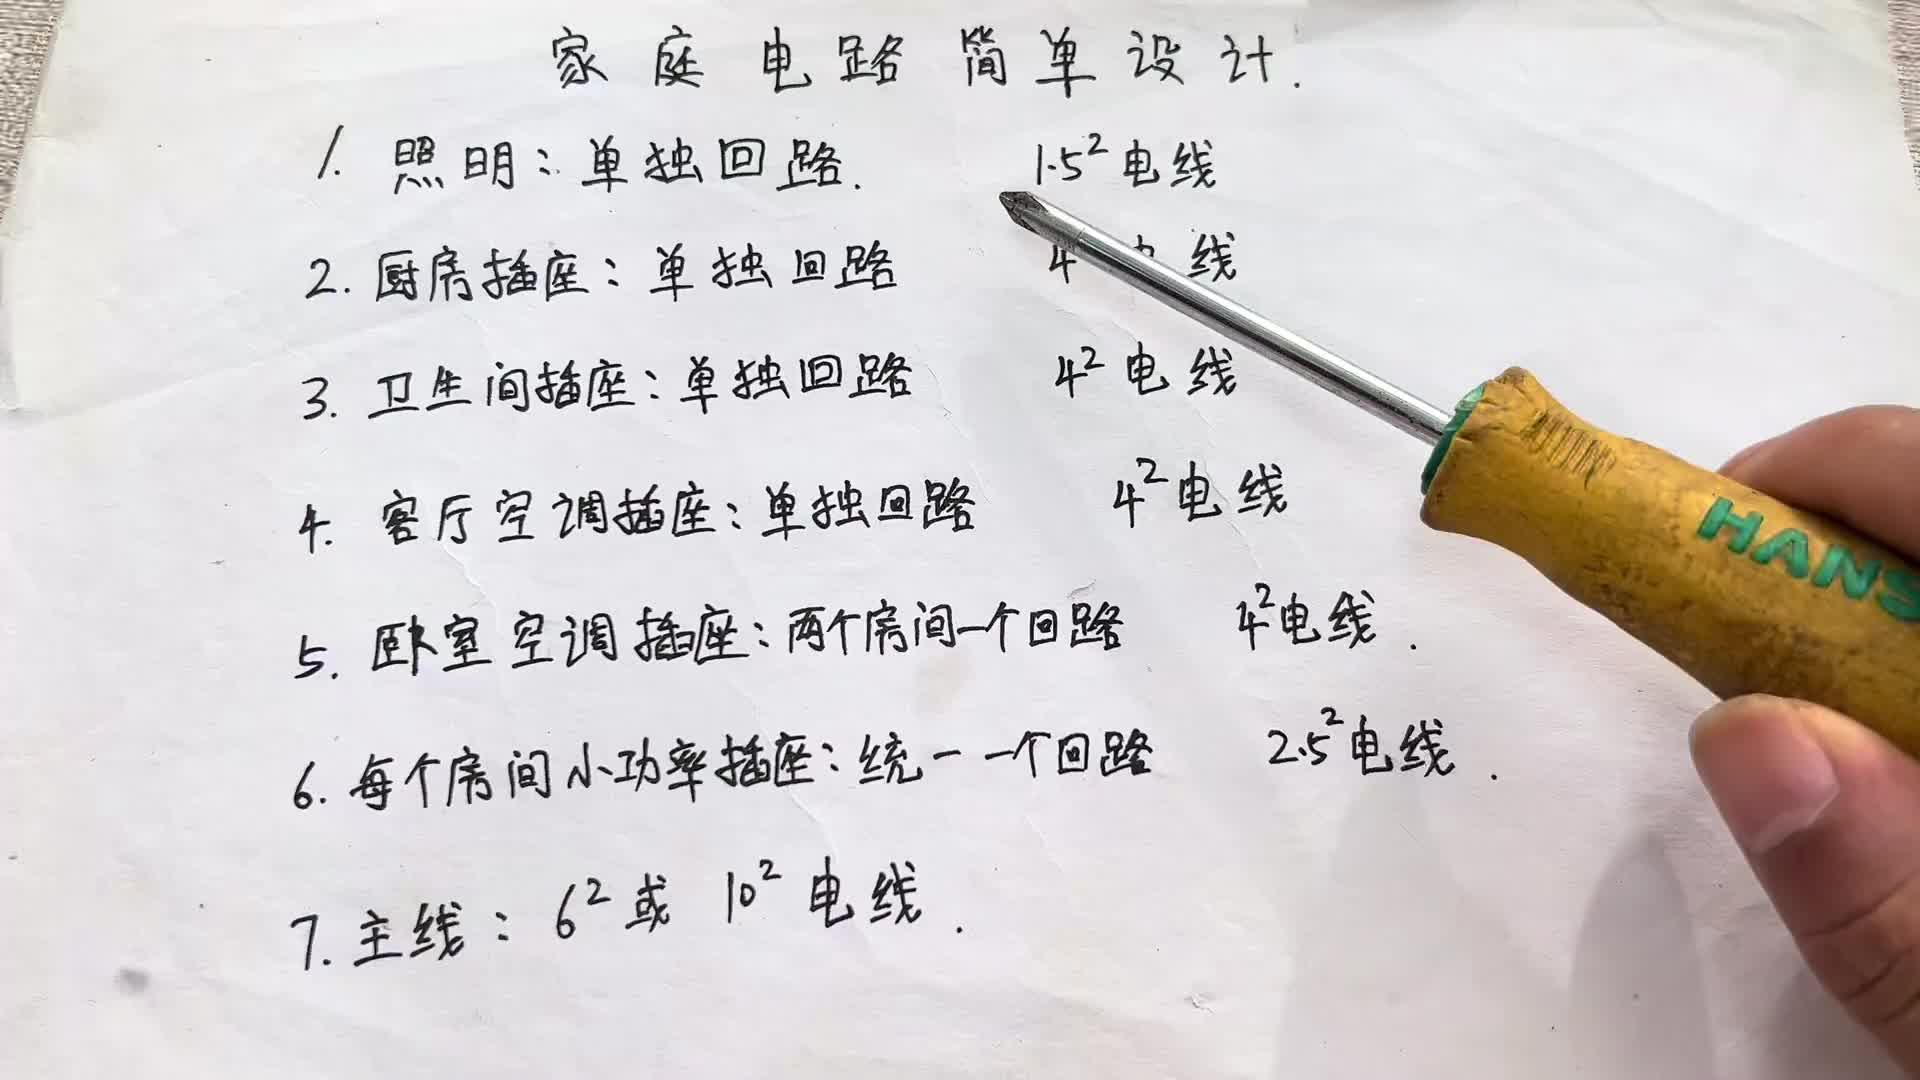 家庭电路简单设计.
1. 照明:单独回路. 1.5² 电线
2. 厨房插座:单独回路 4 电线
3. 卫生间插座:单独回路 4² 电线
4. 客厅空调插座:单独回路 4² 电线
5. 卧室空调插座:两个房间一个回路 4² 电线.
6. 每个房间小功率插座:统一一个回路 2.5² 电线.
7. 主线: 6² 或 10² 电线.
HANS